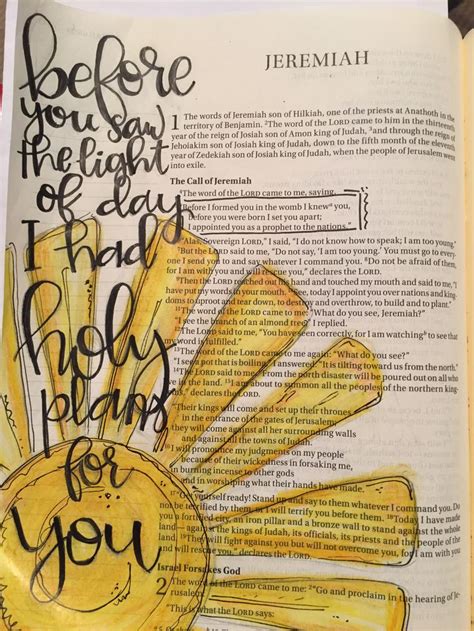 before
you saw
the light
of day
I had
holy
plans
for
you
JEREMIAH
1 The words of Jeremiah son of Hilkiah, one of the priests at Anathoth in the
territory of Benjamin. 2The word of the LORD came to him in the thirteenth
year of the reign of Josiah son of Amon king of Judah, 3and through the reign of
Jehoiakim son of Josiah king of Judah, down to the fifth month of the eleventh
year of Zedekiah son of Josiah king of Judah, when the people of Jerusalem went
into exile.
The Call of Jeremiah
4The word of the LORD came to me, saying,
5"Before I formed you in the womb I knew a you,
before you were born I set you apart;
I appointed you as a prophet to the nations."
6"Alas, Sovereign LORD," I said, "I do not know how to speak; I am too young."
7But the LORD said to me, "Do not say, 'I am too young.' You must go to every-
one I send you to and say whatever I command you. 8Do not be afraid of them,
for I am with you and will rescue you," declares the LORD.
9Then the LORD reached out his hand and touched my mouth and said to me, "I
have put my words in your mouth. 10See, today I appoint you over nations and king-
doms to uproot and tear down, to destroy and overthrow, to build and to plant."
11The word of the LORD came to me: "What do you see, Jeremiah?"
"I see the branch of an almond tree," I replied.
12The LORD said to me, "You have seen correctly, for I am watching b to see that
my word is fulfilled."
13The word of the LORD came to me again: "What do you see?"
"I see a pot that is boiling," I answered. "It is tilting toward us from the north."
14The LORD said to me, "From the north disaster will be poured out on all who
live in the land. 15I am about to summon all the peoples of the northern king-
doms," declares the LORD.
"Their kings will come and set up their thrones
in the entrance of the gates of Jerusalem;
they will come against all her surrounding walls
and against all the towns of Judah.
16I will pronounce my judgments on my people
because of their wickedness in forsaking me,
in burning incense to other gods
and in worshiping what their hands have made.
17"Get yourself ready! Stand up and say to them whatever I command you. Do
not be terrified by them, or I will terrify you before them. 18Today I have made
you a fortified city, an iron pillar and a bronze wall to stand against the
whole land—against the kings of Judah, its officials, its priests and the people of
the land. 19They will fight against you but will not overcome you, for I am with you
and will rescue you," declares the LORD.
Israel Forsakes God
2 The word of the LORD came to me: 2"Go and proclaim in the hearing of Je-
"This is what the LORD says: